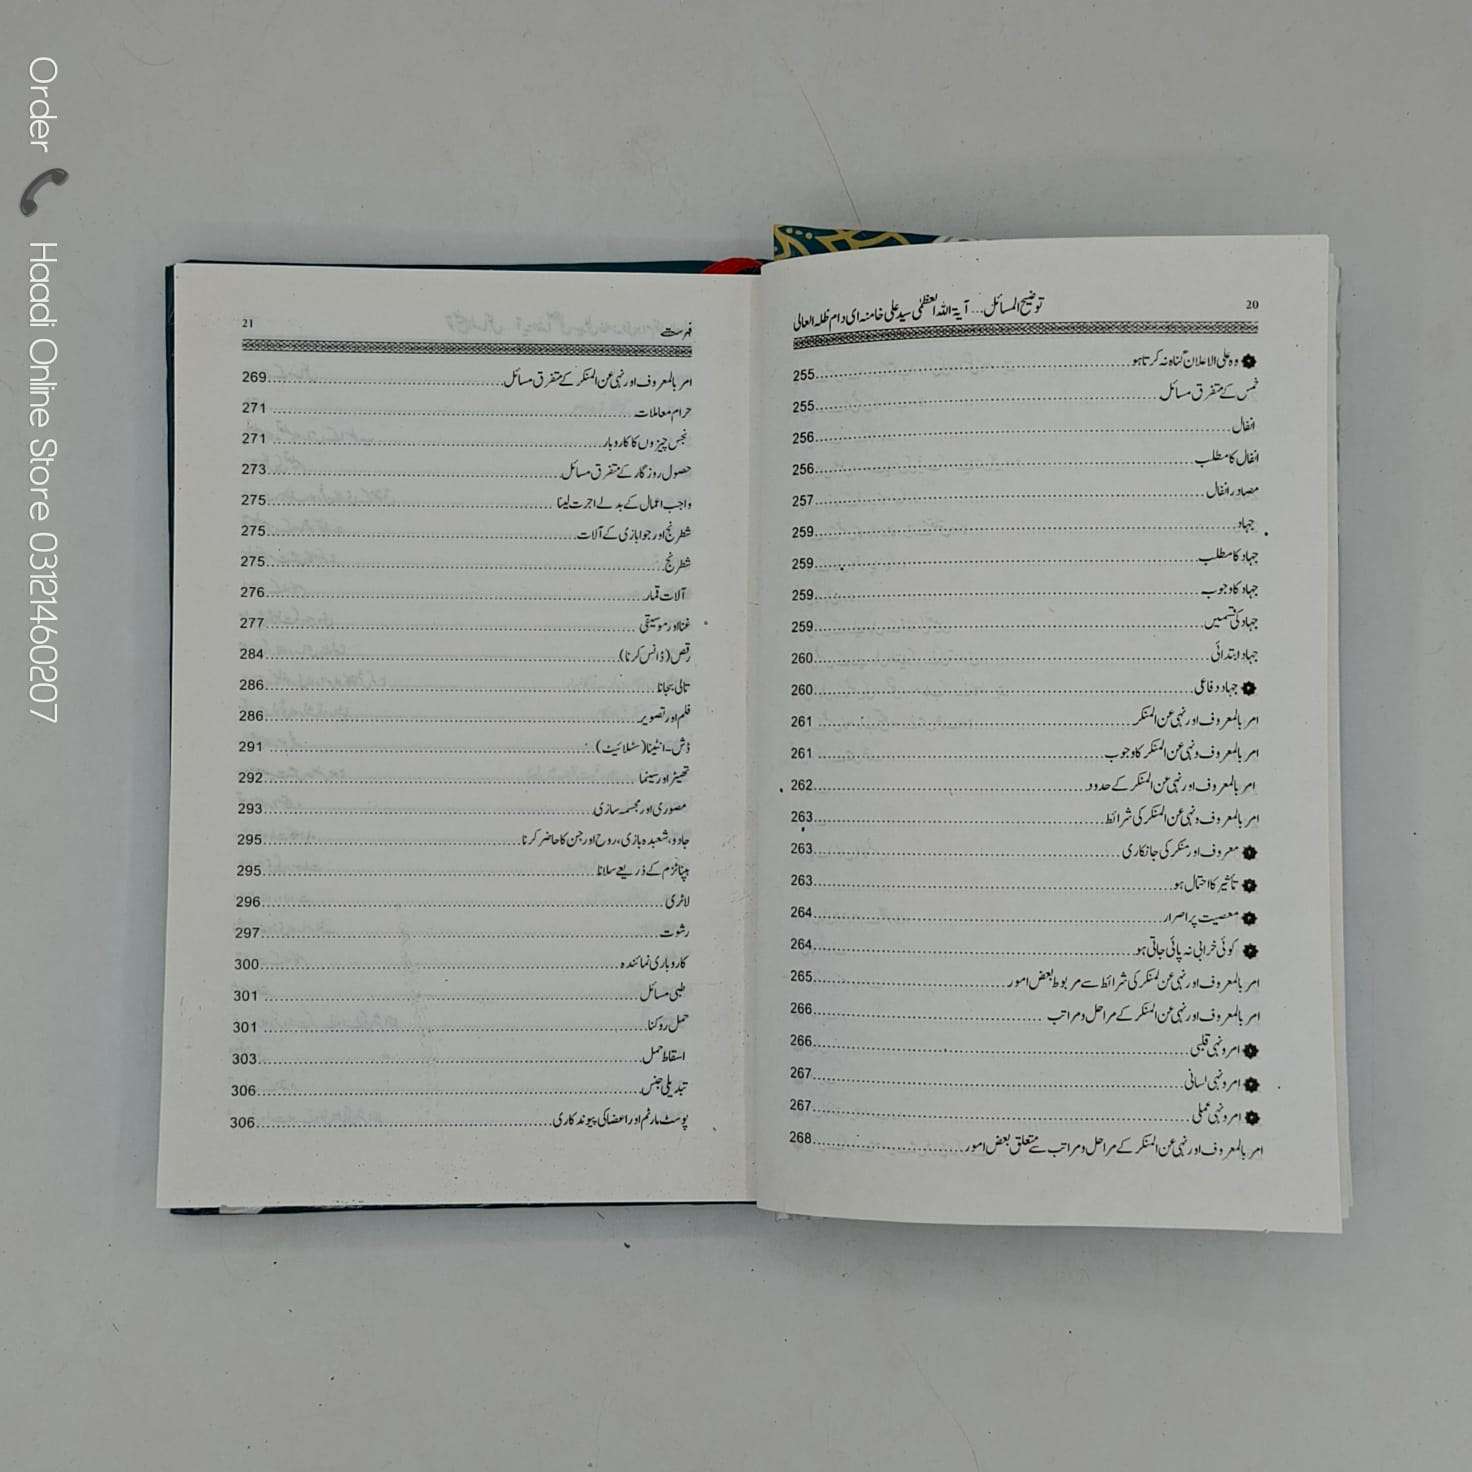 Order Haadi Online Store 03121460207
20 توضیح المسائل... آیۃ اللہ العظمٰی سید علی خامنہ ای دام ظلہ العالی
وہ علی الاعلان گناہ نہ کرتا ہو 255
خمس کے متفرق مسائل 255
انفال 256
انفال کا مطلب 256
مصادر انفال 257
جہاد 259
جہاد کا مطلب 259
جہاد کا وجوب 259
جہاد کی قسمیں 259
جہاد ابتدائی 260
جہاد دفاعی 260
امر بالمعروف اور نہی عن المنکر 261
امر بالمعروف و نہی عن المنکر کا وجوب 261
امر بالمعروف اور نہی عن المنکر کے حدود 262
امر بالمعروف و نہی عن المنکر کی شرائط 263
معروف اور منکر کی جانکاری 263
تأثیر کا احتمال ہو 263
معصیت پر اصرار 264
کوئی خرابی نہ پائی جاتی ہو 264
امر بالمعروف اور نہی عن المنکر کی شرائط سے مربوط بعض امور 265
امر بالمعروف اور نہی عن المنکر کے مراحل و مراتب 266
امر و نہی قلبی 266
امر و نہی لسانی 267
امر و نہی عملی 267
امر بالمعروف اور نہی عن المنکر کے مراحل و مراتب سے متعلق بعض امور 268
فہرست 21
امر بالمعروف اور نہی عن المنکر کے متفرق مسائل 269
حرام معاملات 271
نجس چیزوں کا کاروبار 271
حصول روزگار کے متفرق مسائل 273
واجب اعمال کے بدلے اجرت لینا 275
شطرنج اور جوا بازی کے آلات 275
شطرنج 275
آلات قمار 276
غنا اور موسیقی 277
رقص (ڈانس کرنا) 284
تالی بجانا 286
فلم اور تصویر 286
ڈش۔انٹینا (سٹلائیٹ) 291
تھیٹر اور سینما 292
مصوری اور مجسمہ سازی 293
جادو، شعبدہ بازی، روح اور جن کا حاضر کرنا 295
ہپناٹزم کے ذریعے سلانا 295
لاٹری 296
رشوت 297
کاروباری نمائندہ 300
طبی مسائل 301
حمل روکنا 301
اسقاط حمل 303
تبدیلی جنس 306
پوسٹ مارٹم اور اعضا کی پیوند کاری 306